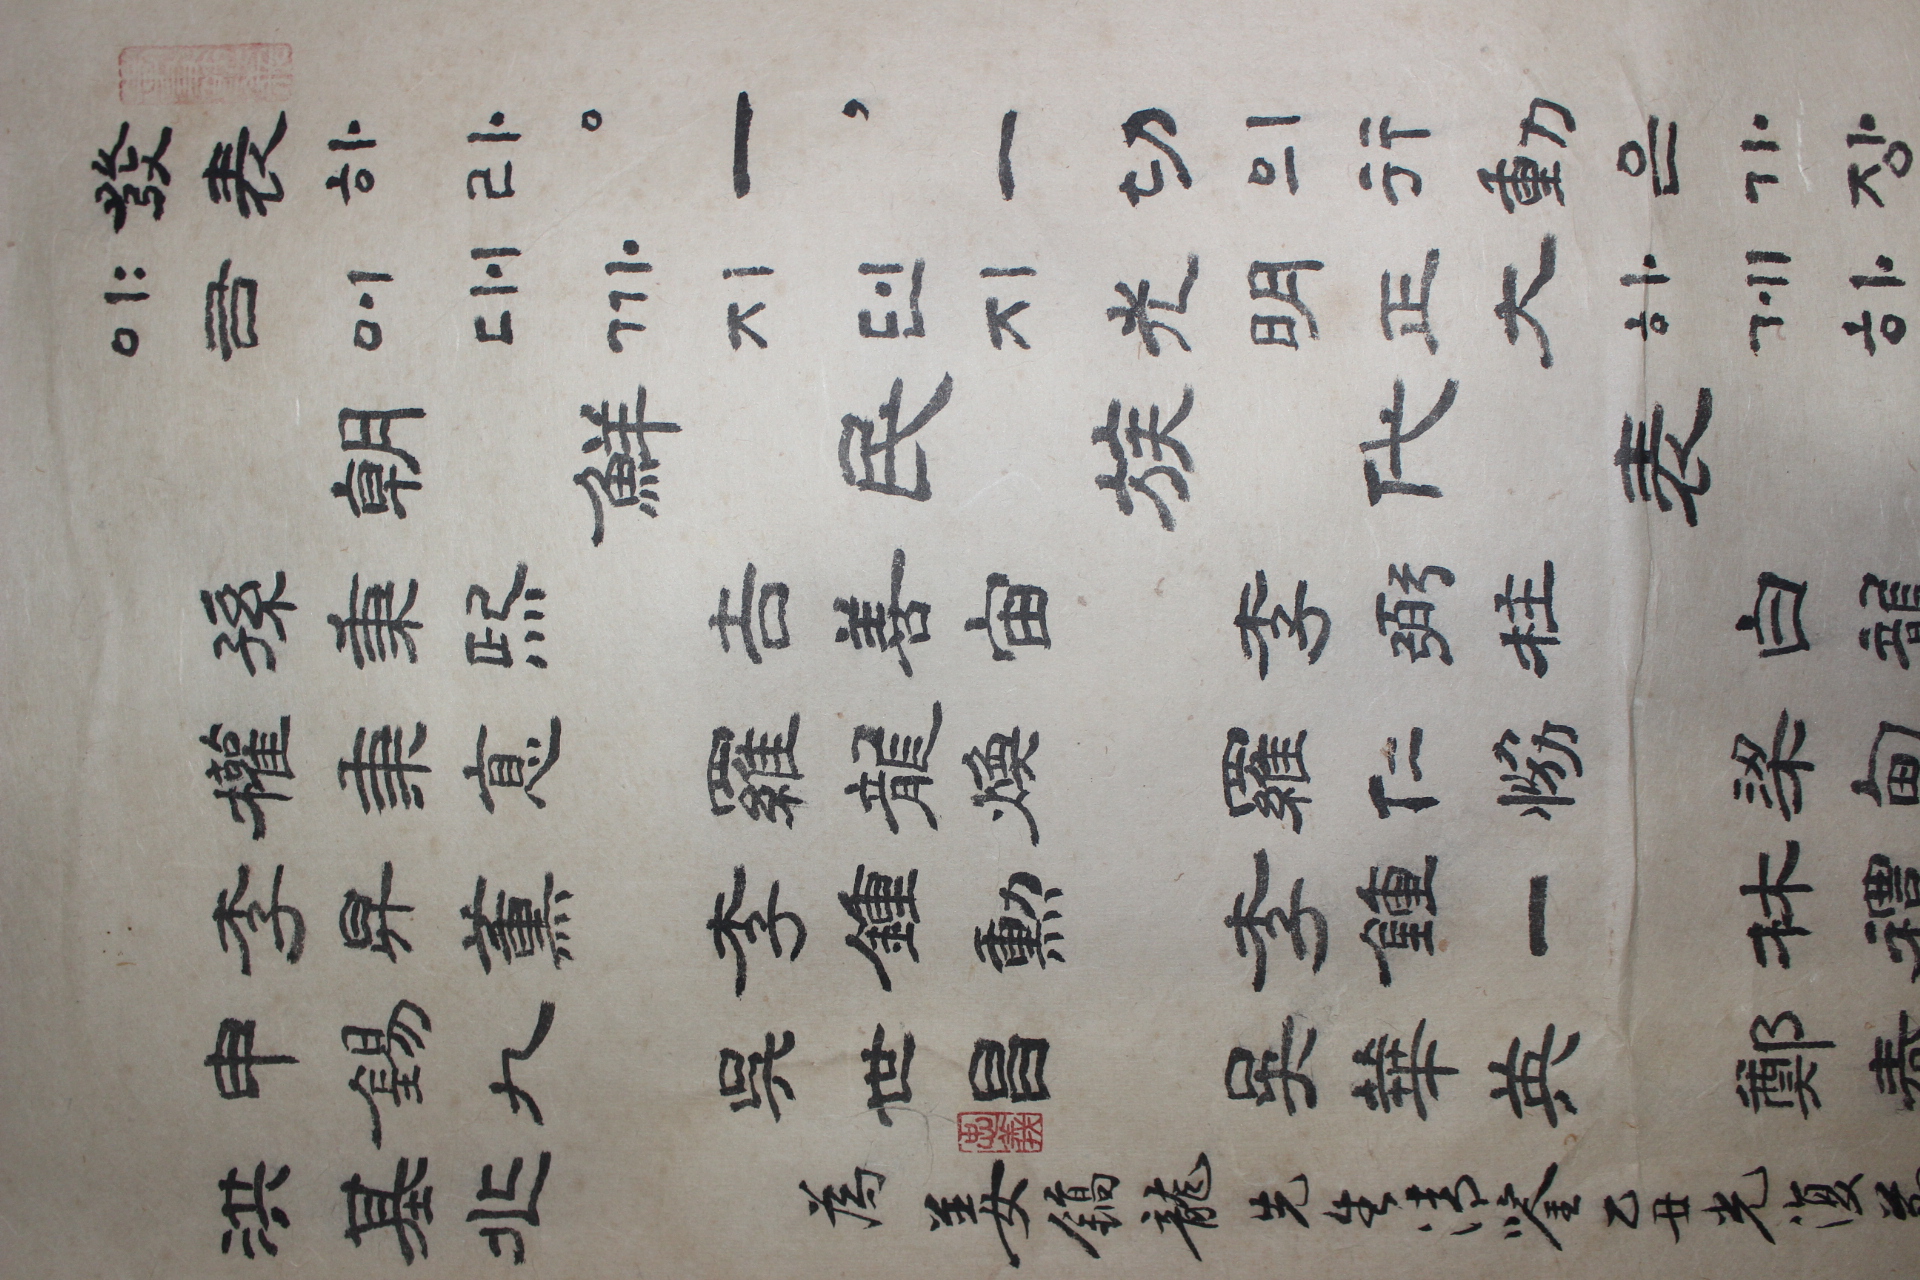 發表하라。一,一切의行動은가장
이금에대까지던지光明正大하게하
朝鮮民族代表
孫秉熙 吉善宙 李弼柱 白龍
權秉悳 羅龍煥 羅仁協 梁甸
李昇薰 李鍾勳 李鍾一 林禮
申錫九 吳世昌 吳華英 鄭春
洪基兆
為姜鎬龍先生清鑒乙丑光復
忠義